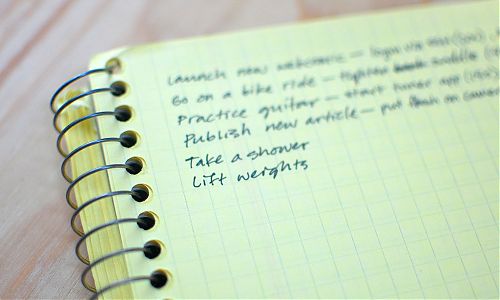 Launch new website — login via
Go on a bike ride — tighten saddle
Practice guitar — start tuner app
Publish new article — put on
Take a shower
Lift weights